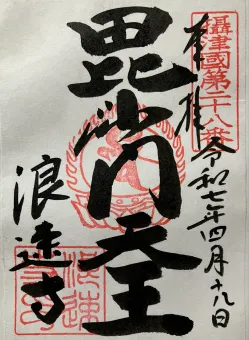 奉拝
攝津國第二十八番
令和七年四月十八日
毘沙門天王
浪速寺